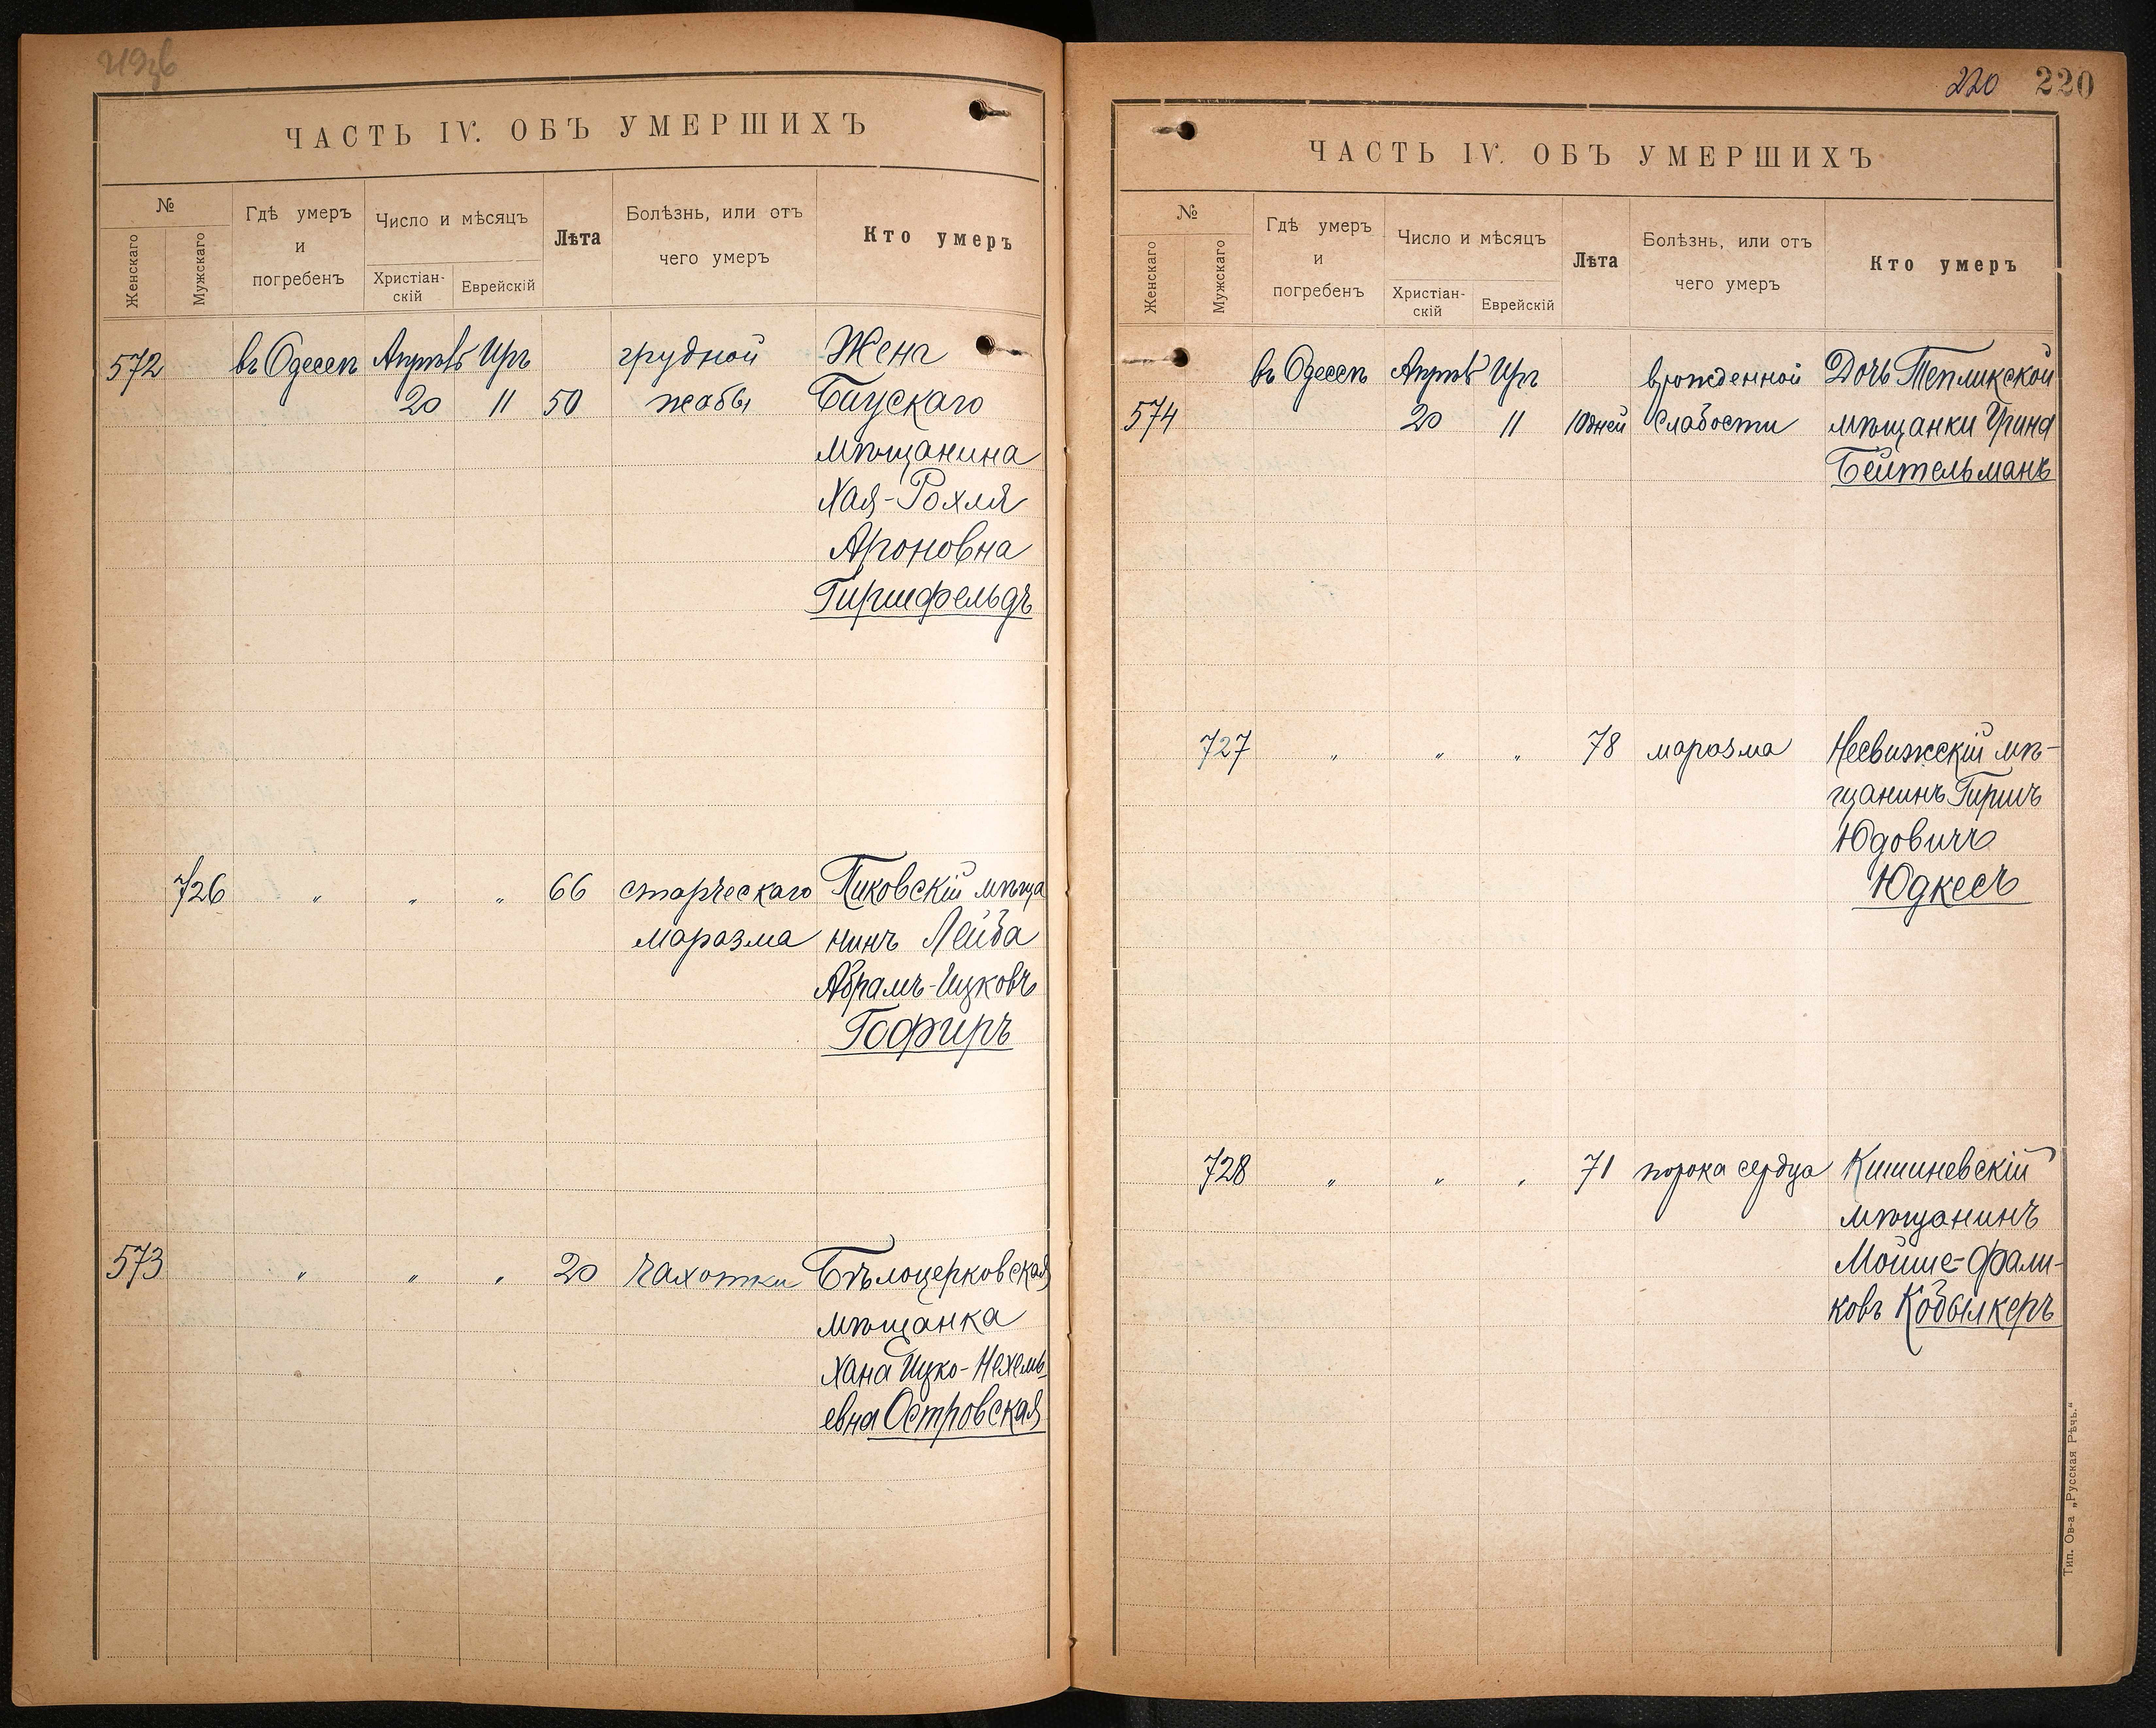 ЧАСТЬ IV. ОБЪ УМЕРШИХЪ
№
Женскаго
Мужскаго
Гдѣ умеръ
и
погребенъ
Число и мѣсяцъ
Христіан-
скій
Еврейскій
Лѣта
Болѣзнь, или отъ
чего умеръ
Кто умеръ
572 въ Одессѣ Апрѣль Ира грудной Жена
20 11 50 жабы Баускаго
мѣщанина
Хая-Рохля
Ароновна
Гиршфельдъ
726 " " " 66 старческаго Пиковскій мѣща
маразма нинъ Лейба
Абрамъ-Ицковъ
Гофиръ
573 " " " 20 чахотки Бѣлоцерковская
мѣщанка
Хана Ицко-Нехемь
евна Островская
220 220
ЧАСТЬ IV. ОБЪ УМЕРШИХЪ
№
Женскаго
Мужскаго
Гдѣ умеръ
и
погребенъ
Число и мѣсяцъ
Христіан-
скій
Еврейскій
Лѣта
Болѣзнь, или отъ
чего умеръ
Кто умеръ
въ Одессѣ Апрѣль Ира врожденной Дочь Тепликской
574 20 11 10 дней слабости мѣщанки
Бейтельманъ
727 " " " 78 маразма Несвижскій мѣ-
щанинъ Гиршъ
Юдовичъ
Юдкесъ
728 " " " 71 порока сердца Кишиневскій
мѣщанинъ
Мойше-Фали-
ковъ Кобылкеръ
Тип. Ов-а „Русская Рѣчь."